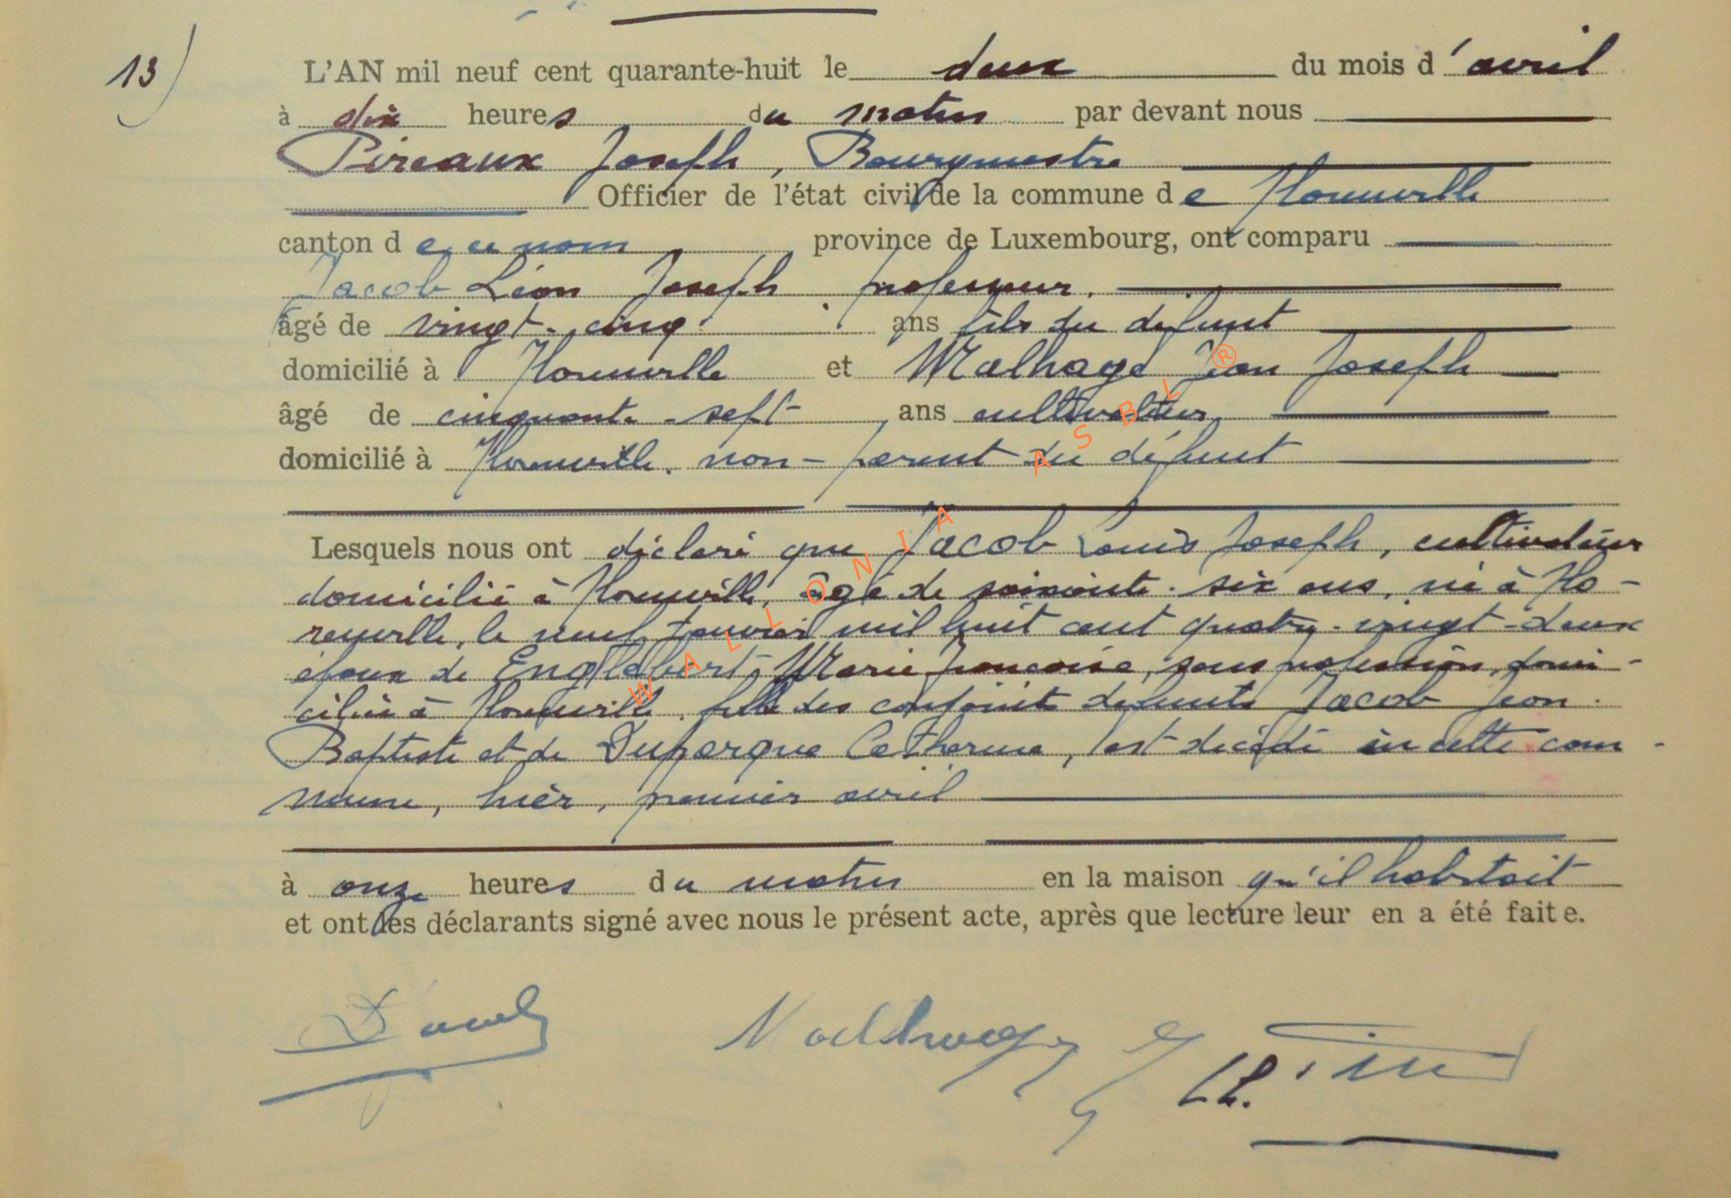 13) L'AN mil neuf cent quarante-huit le deux du mois d'avril
à dix heures du matin par devant nous
Pireaux Joseph, Bourgmestre
Officier de l'état civil de la commune de Houmville
canton de ce nom province de Luxembourg, ont comparu
Jacob Léon Joseph professeur.
âgé de vingt-cinq ans fils du défunt
domicilié à et Malhage Jean Joseph
âgé de cinquante-sept ans cultivateur,
domicilié à non-parent du défunt
Lesquels nous ont déclaré que Jacob Louis Joseph, cultivateur
domicilié à âgé de soixante-six ans, né à
le neuf janvier mil huit cent quatre-vingt-deux
époux de Englebert, Marie Françoise, sans profession, domi-
ciliée à fils des conjoints défunts Jacob Jean
Baptiste et de Duparque Catherine, est décédé en cette com-
mune, hièr, premier avril
à onze heures du matin en la maison qu'il habitait
et ont les déclarants signé avec nous le présent acte, après que lecture leur en a été faite.
WALLONIA ASBL ®